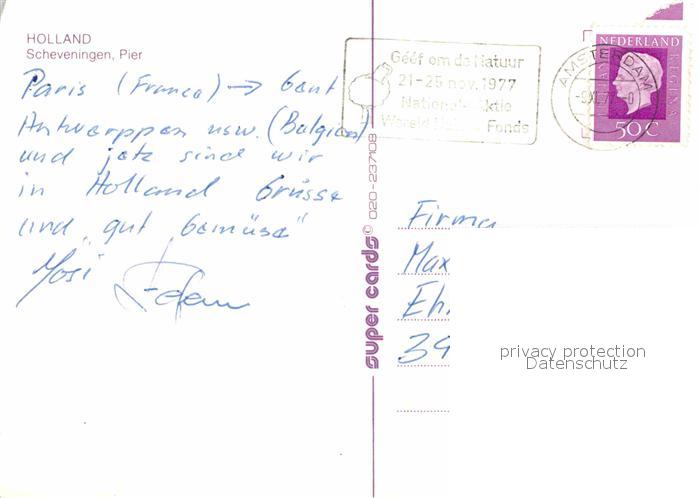 HOLLAND
Scheveningen, Pier
Paris (France) → Gent
Antwerppen usw. (Belgien)
und jetz sind wir
in Holland Grüsse
und „gut Gemüse"
Yosi
Géef om de Natuur
21-25 nov. 1977
Nationale Aktie
Wereld Fonds
AMSTERDAM
NEDERLAND
50C
super cards © 020-237108
Firma
Max
Eh.
34
privacy protection
Datenschutz